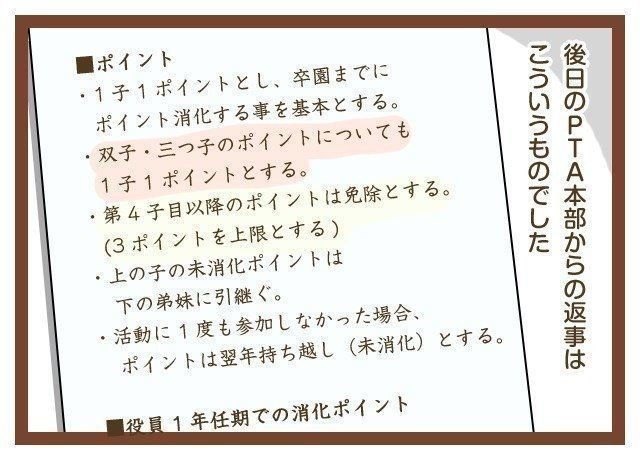 後日のPTA本部からの返事は
こういうものでした
■ポイント
・1子1ポイントとし、卒園までに
ポイント消化する事を基本とする。
・双子・三つ子のポイントについても
1子1ポイントとする。
・第4子目以降のポイントは免除とする。
(3ポイントを上限とする)
・上の子の未消化ポイントは
下の弟妹に引継ぐ。
・活動に1度も参加しなかった場合、
ポイントは翌年持ち越し(未消化)とする。
■役員1年任期での消化ポイント